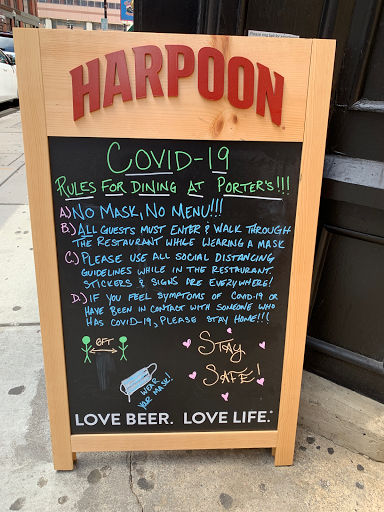 HARPOON
COVID-19
RULES FOR DINING AT PORTER'S!!!
A) NO MASK, NO MENU!!!
B) ALL GUESTS MUST ENTER & WALK THROUGH
THE RESTAURANT WHILE WEARING A MASK
C) PLEASE USE ALL SOCIAL DISTANCING
GUIDELINES WHILE IN THE RESTAURANT.
STICKERS & SIGNS ARE EVERYWHERE!
D) IF YOU FEEL SYMPTOMS OF COVID-19 OR
HAVE BEEN IN CONTACT WITH SOMEONE WHO
HAS COVID-19, PLEASE STAY HOME!!!
6FT
STAY
SAFE!
WEAR
YOUR MASK!
LOVE BEER. LOVE LIFE.